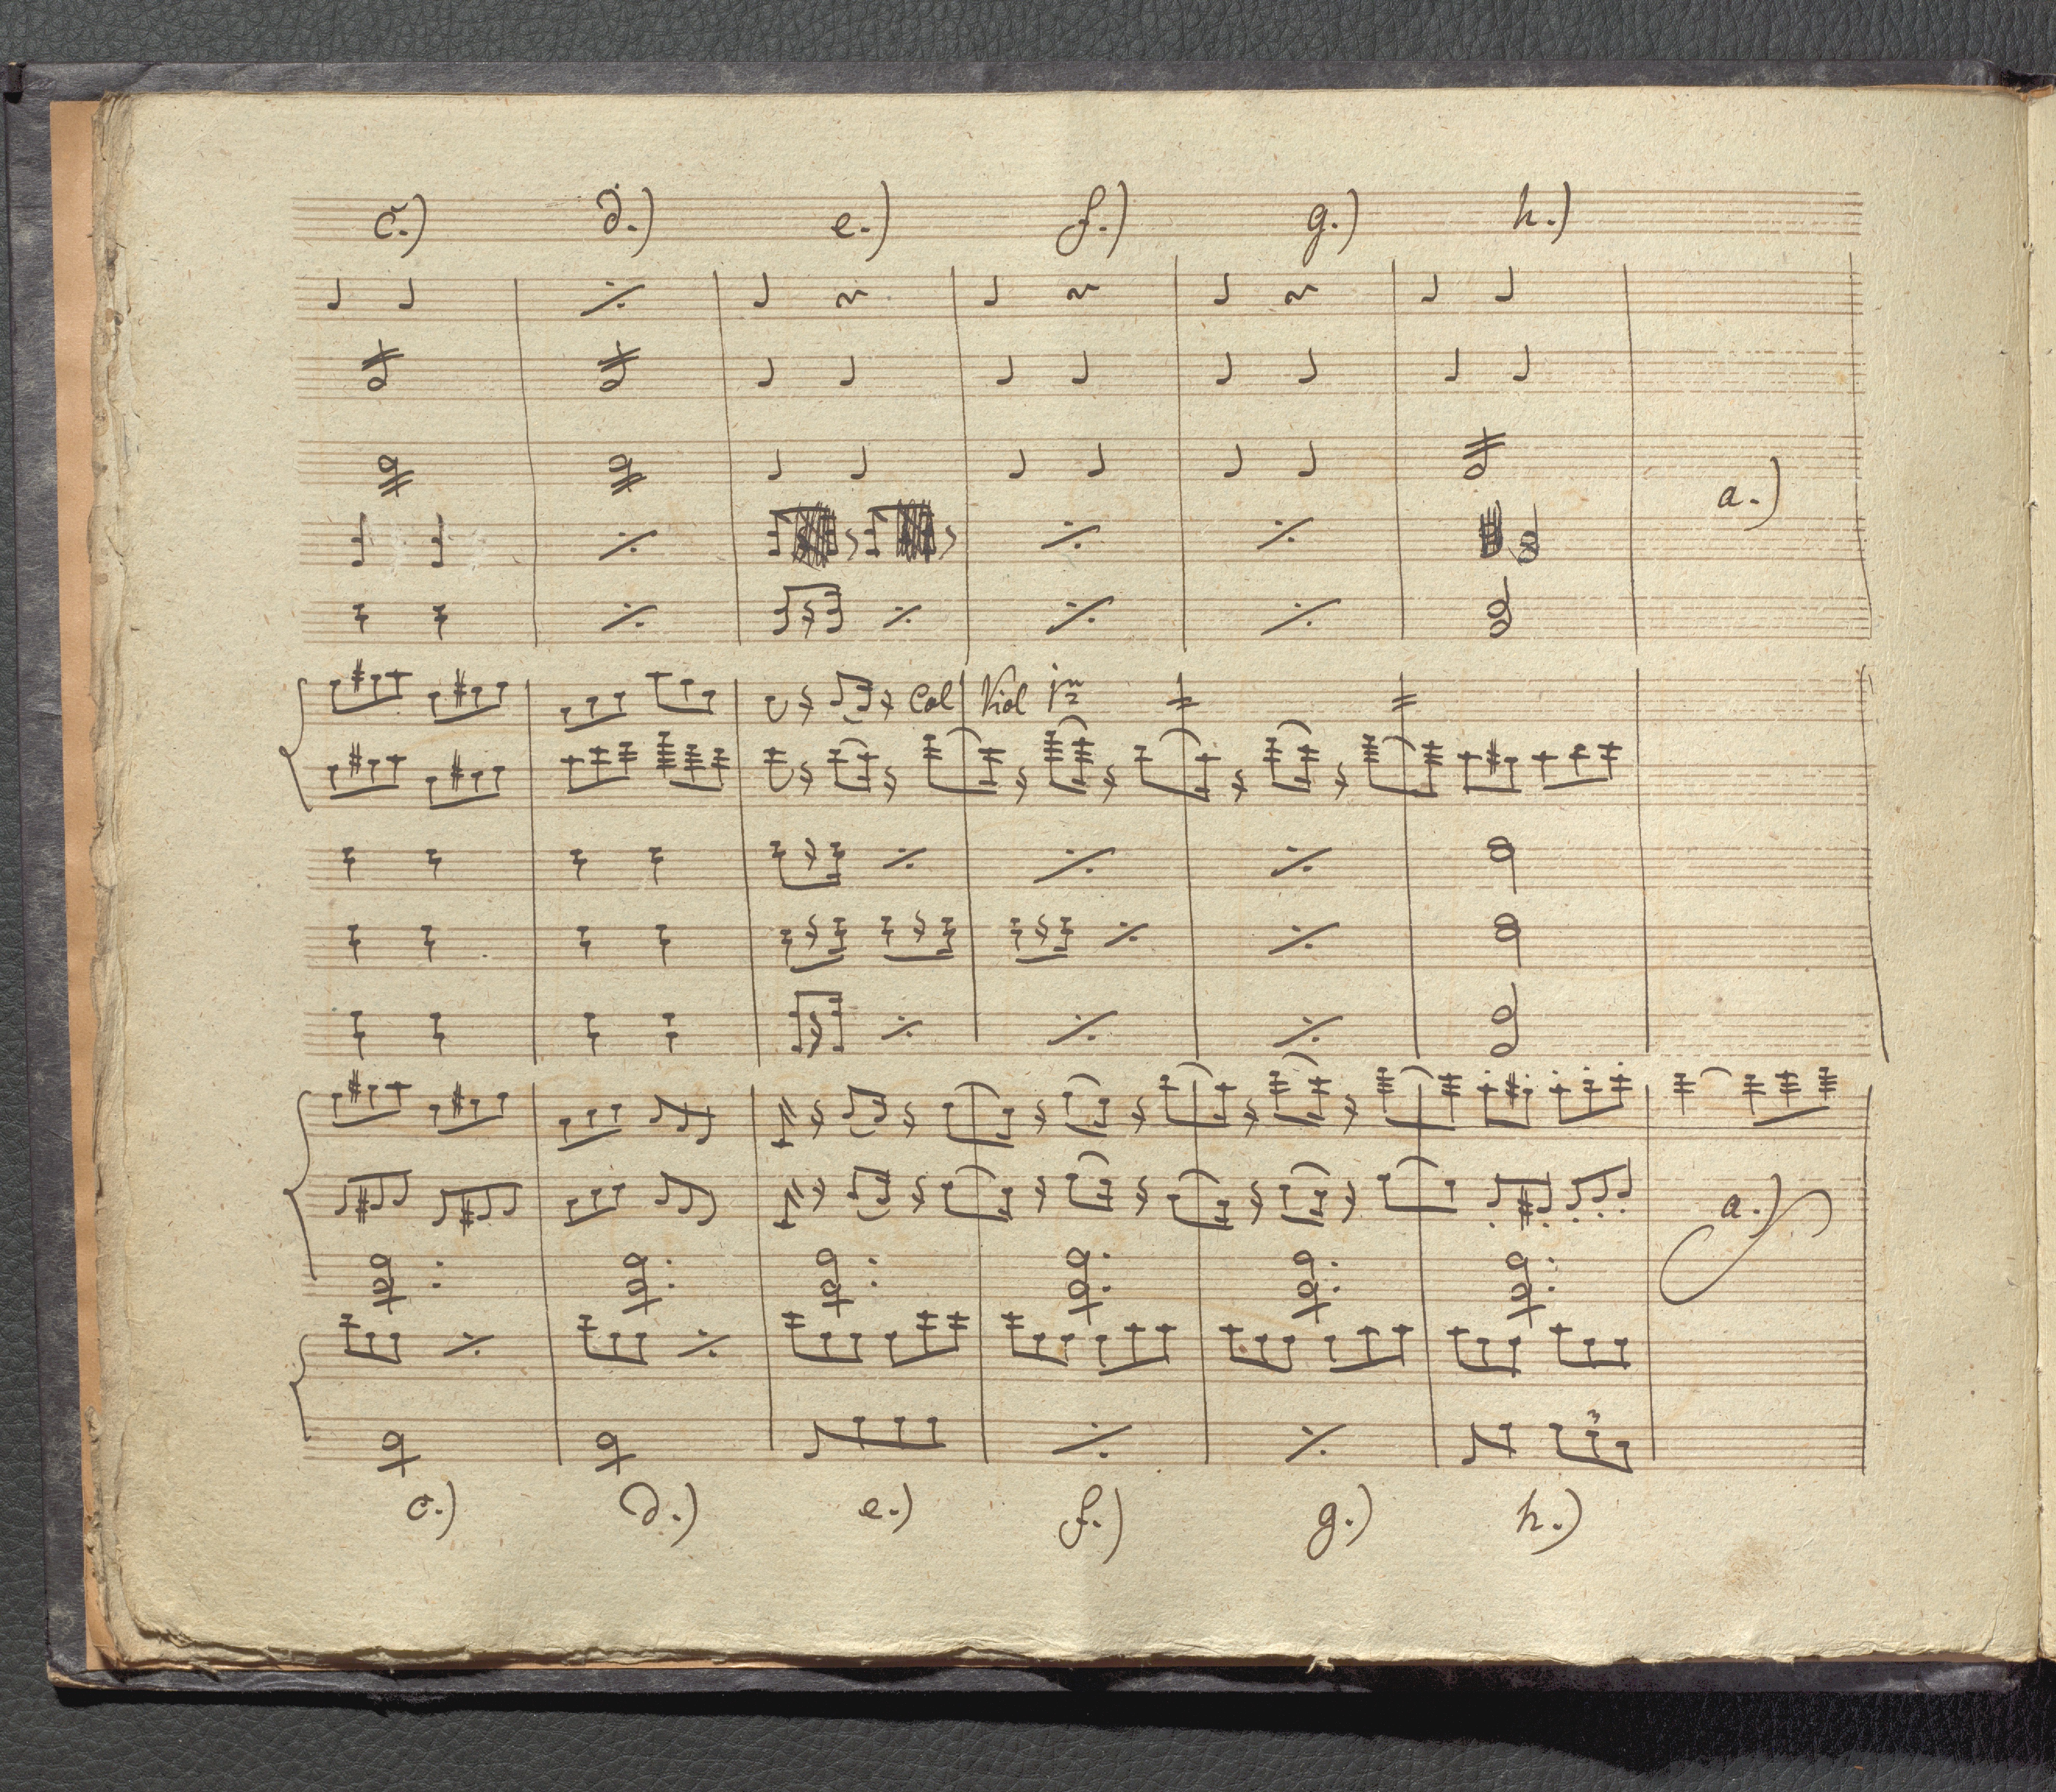 c.) d.) e.) f.) g.) h.)
a.)
Col Viol 1º
3
a.)
c.) d.) e.) f.) g.) h.)